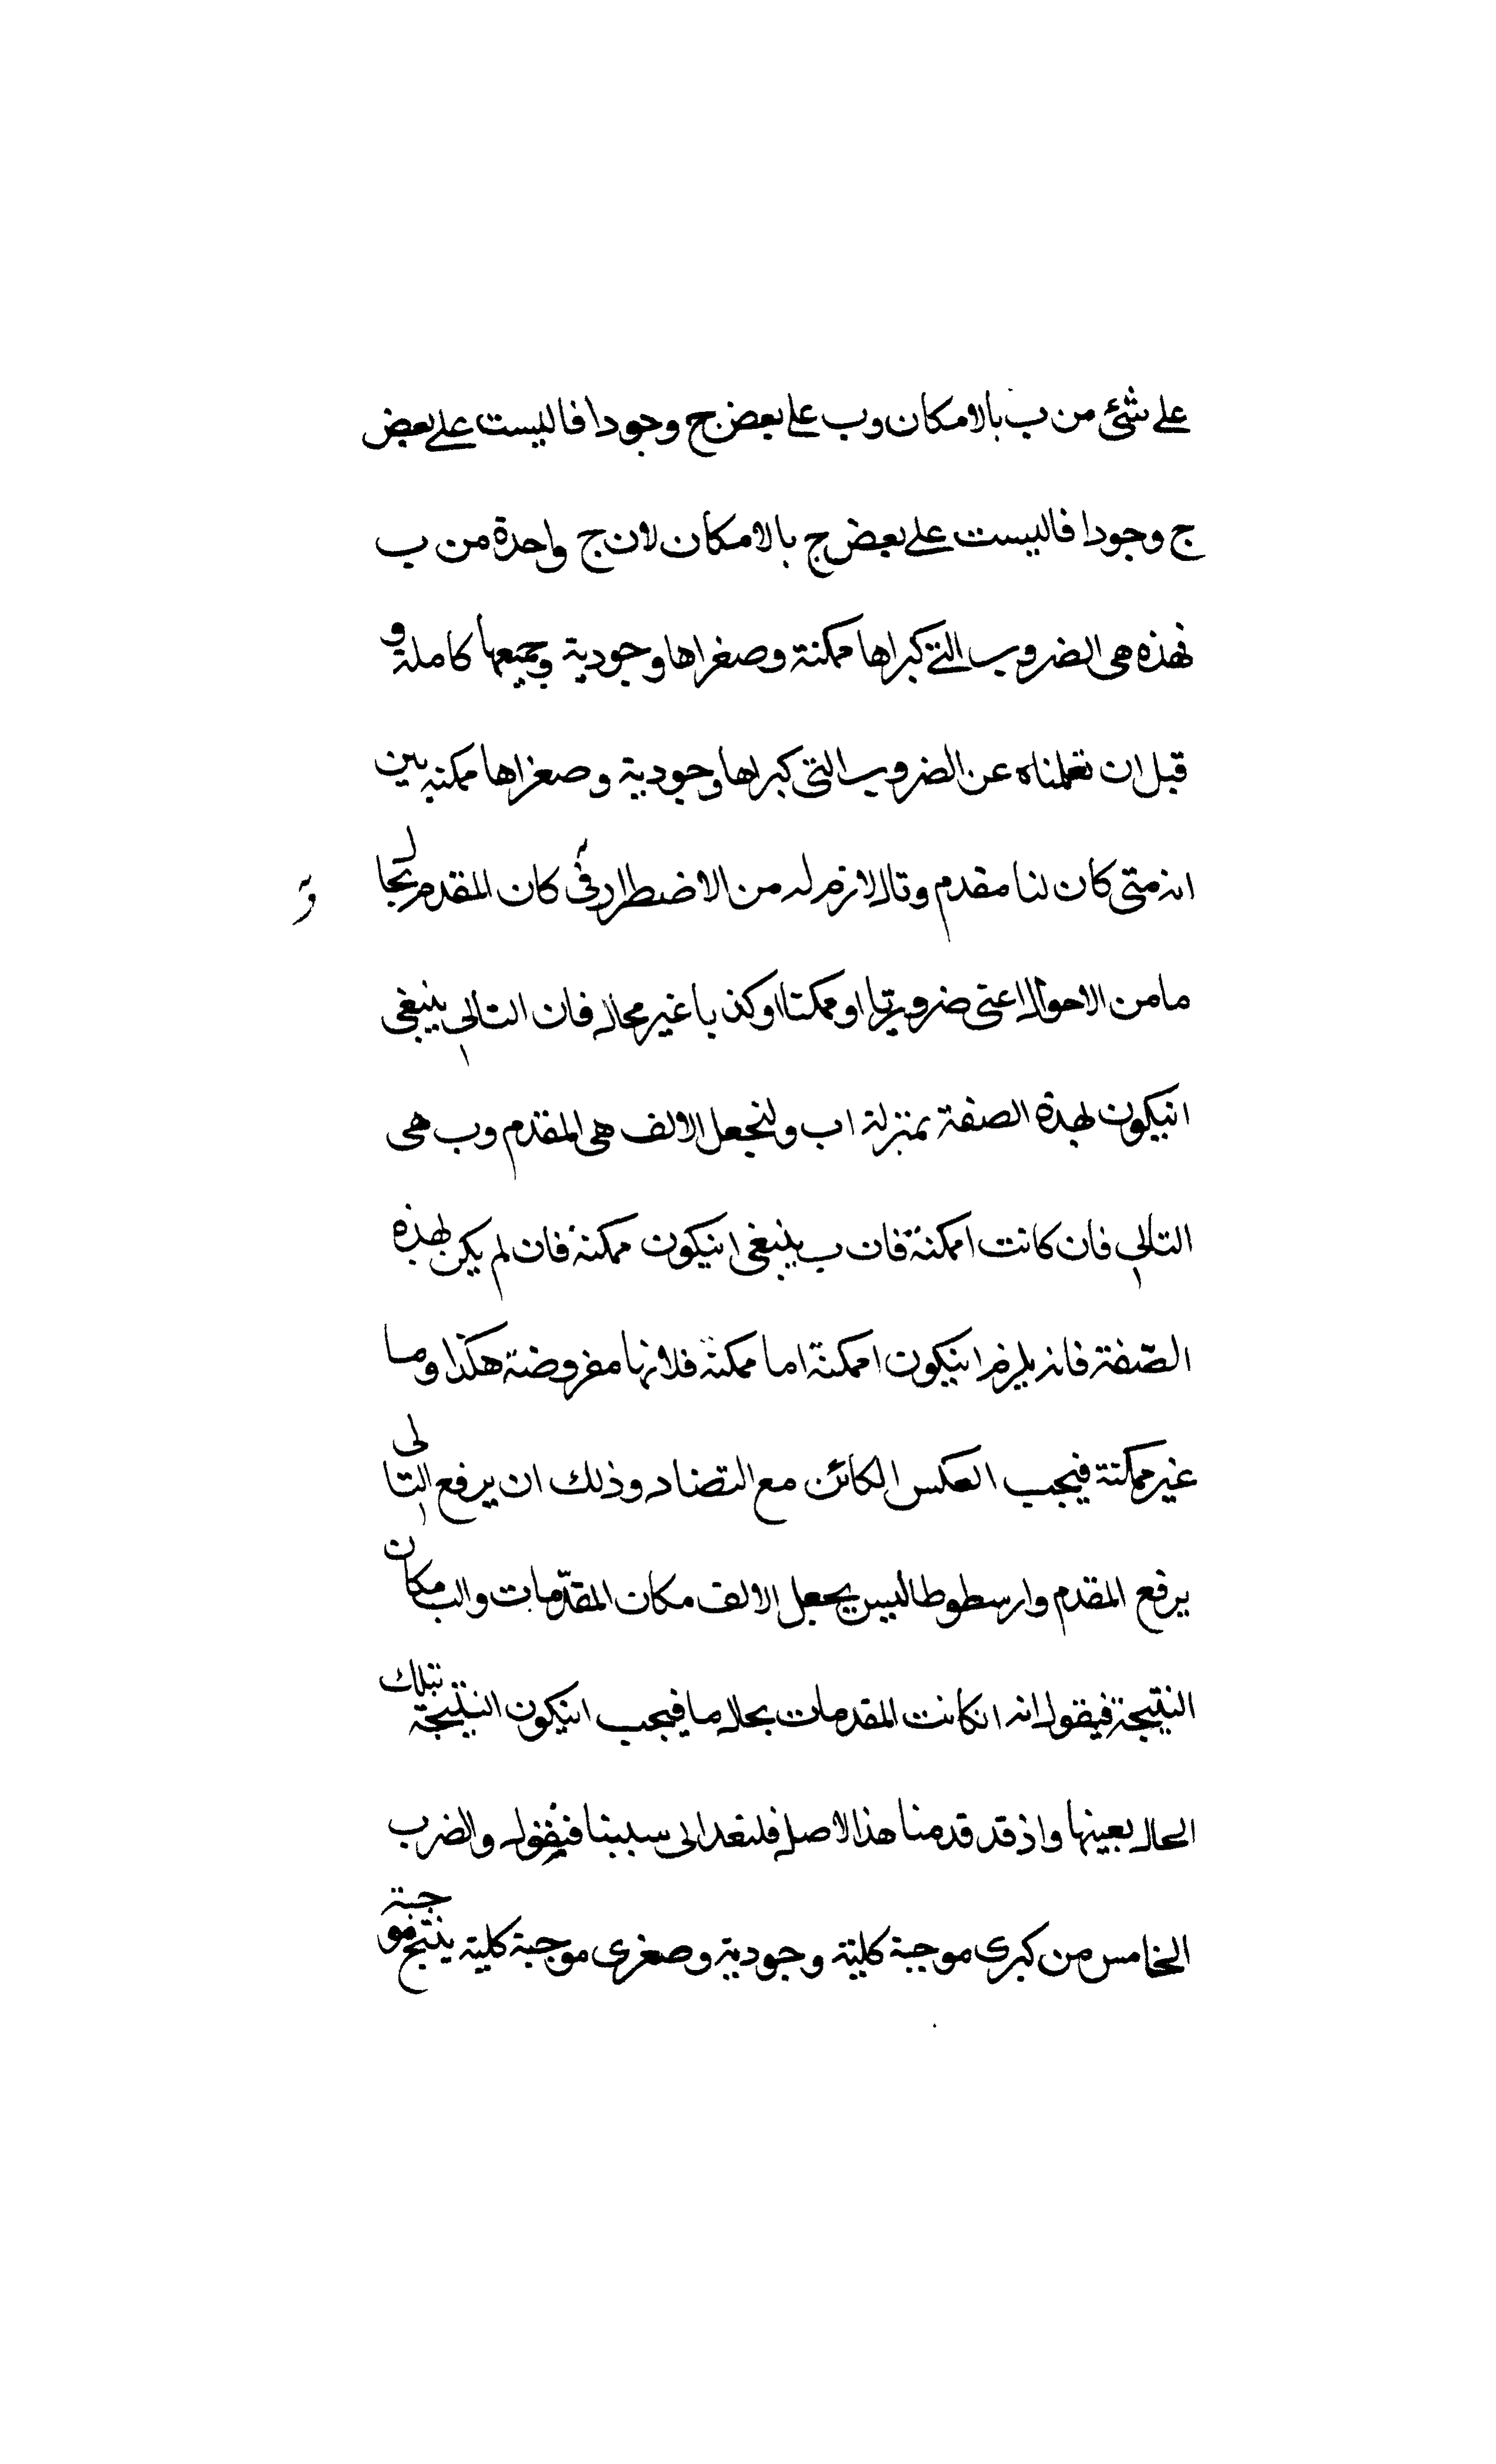 على شئ من ب بالامكان وب على بعض ج وجودا فا ليست على بعض
ج وجودا فا ليست على بعض ج بالامكان لان ج واحدة من ب
فهذه هى الضروب التى كبراها ممكنة وصغراها وجودية وجميعها كاملة و
قبل ان تعلمناه عن الضروب التى كبراها وجودية وصغراها ممكنه بين
انه متى كان لنا مقدم وتال لازم له من الاضطرار كان المقدم بحال
ما من الاحوال اعنى ضروريا او ممكنا او كذبا غير محال فان التالى ينبغى
انيكون لهذه الصفة بمنزلة ا ب ولنجعل الالف هى المقدم وب هى
التالى فان كانت ا ممكنة فان ب ينبغى انيكون ممكنة فان لم يكن لهذه
الصّفة فانه يلزم انيكون ا ممكنة اما ممكنة فلانها مفروضة هكذا وما
غير ممكنة فيجب العكس الكائن مع التضاد وذلك ان يرفع التالى
يرفع المقدم وارسطوطاليس يجعل الالف مكان المقدّمات والب مكان
النتيجة فيقول انه انكانت المقدمات بحال ما فيجب انيكون النتيجة بتلك
الحال بعينها واذ قد قدمنا هذا الاصل فلنعد الى سبيلنا فنقول والضرب
الخامس من كبرى موجبة كلية وجودية وصغرى موجبة كلية ينتج موجبة